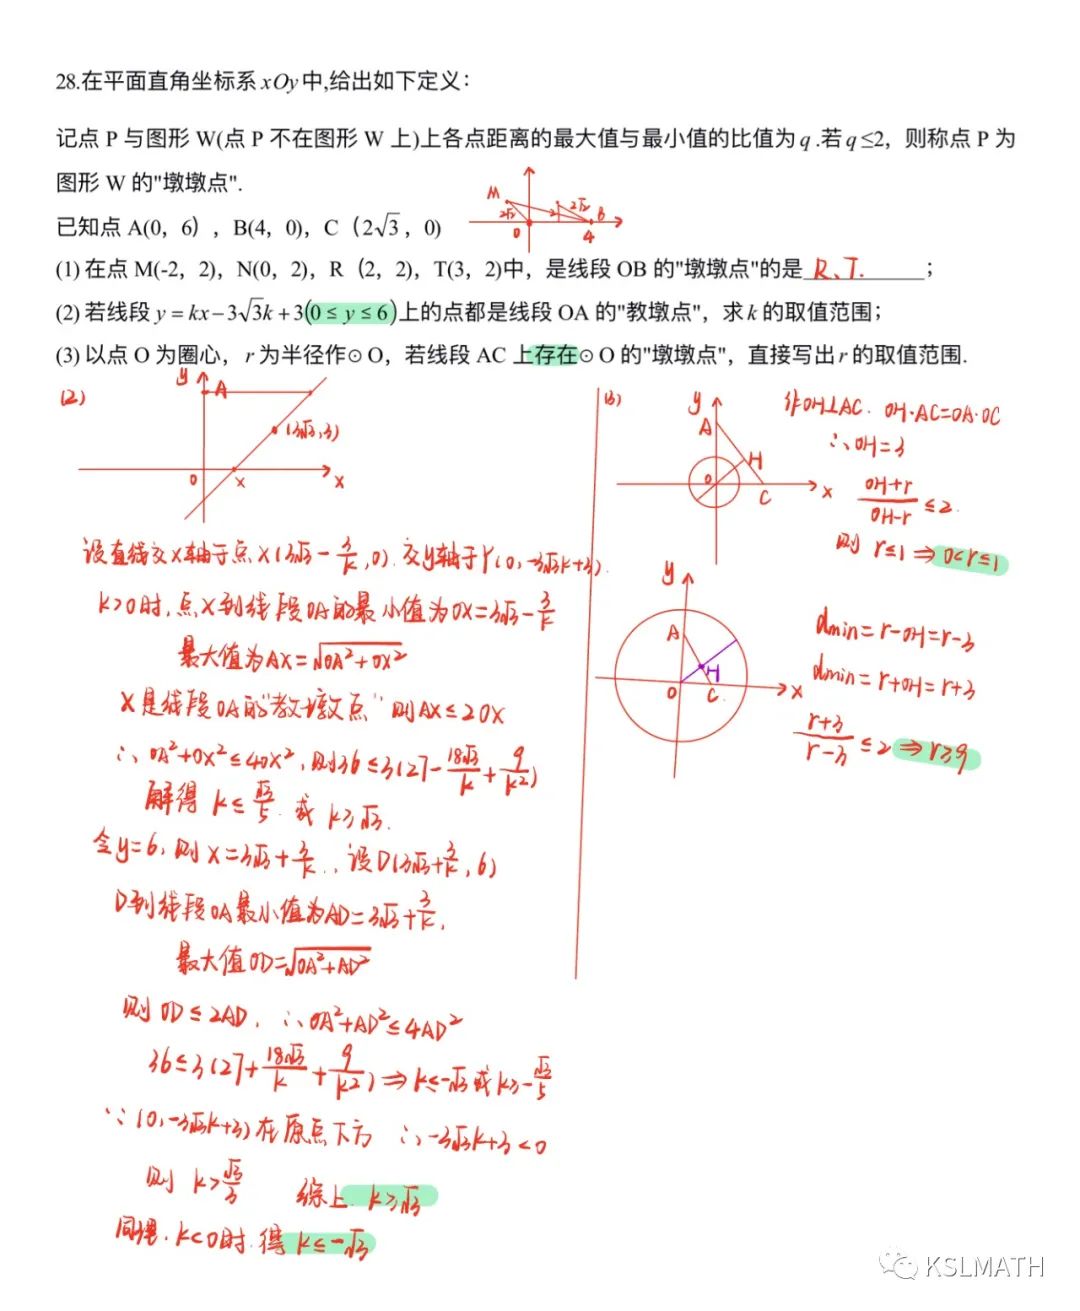 28.在平面直角坐标系 xOy 中,给出如下定义：
记点 P 与图形 W(点 P 不在图形 W 上)上各点距离的最大值与最小值的比值为 q .若 q ≤2，则称点 P 为
图形 W 的"墩墩点".
已知点 A(0，6），B(4，0)，C（2√3，0)
M
2√2
2
2√2
B
0
4
(1) 在点 M(-2，2)，N(0，2)，R（2，2)，T(3，2)中，是线段 OB 的"墩墩点"的是 R、T. ；
(2) 若线段 y = kx−3√3k+3(0 ≤ y ≤ 6)上的点都是线段 OA 的"教墩点"，求 k 的取值范围；
(3) 以点 O 为圈心，r 为半径作⊙O，若线段 AC 上存在⊙O 的"墩墩点"，直接写出 r 的取值范围.
(2)
y
A
(3√3,3)
0
X
x
设直线交X轴于点X(3√3-3/k,0).交y轴于Y(0,-3√3k+3).
k>0时,点X到线段OA的最小值为OX=3√3-3/k
最大值为AX=√(OA²+OX²)
X是线段OA的"教墩点" 则AX≤2OX
∴ OA²+OX²≤4OX²,则36≤3(27-18√3/k+9/k²)
解得 k≤√3/5 或 k≥√3.
令y=6,则x=3√3+3/k.,设D(3√3+3/k,6)
D到线段OA最小值为AD=3√3+3/k,
最大值OD=√(OA²+AD²)
则 OD≤2AD, ∴OA²+AD²≤4AD²
36≤3(27+18√3/k+9/k²)⇒k≤-√3或k≥-√3/5
∵(0,-3√3k+3)在原点下方 ∴-3√3k+3<0
则 k>√3/3 综上. k≥√3
同理.k<0时.得 k≤-√3
(3)
y
A
H
0
C
x
作OH⊥AC. OH·AC=OA·OC
∴OH=3
OH+r/OH-r ≤2.
则 r≤1⇒0<r≤1
y
A
H
0
C
x
dmin=r-OH=r-3
dmin=r+OH=r+3
r+3/r-3 ≤2⇒r≥9
KSLMATH